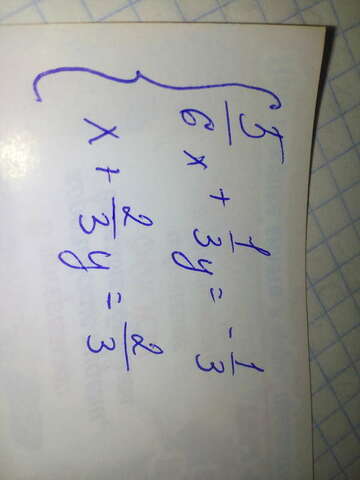 5/6 x + 1/3 y = -1/3
x + 2/3 y = 2/3